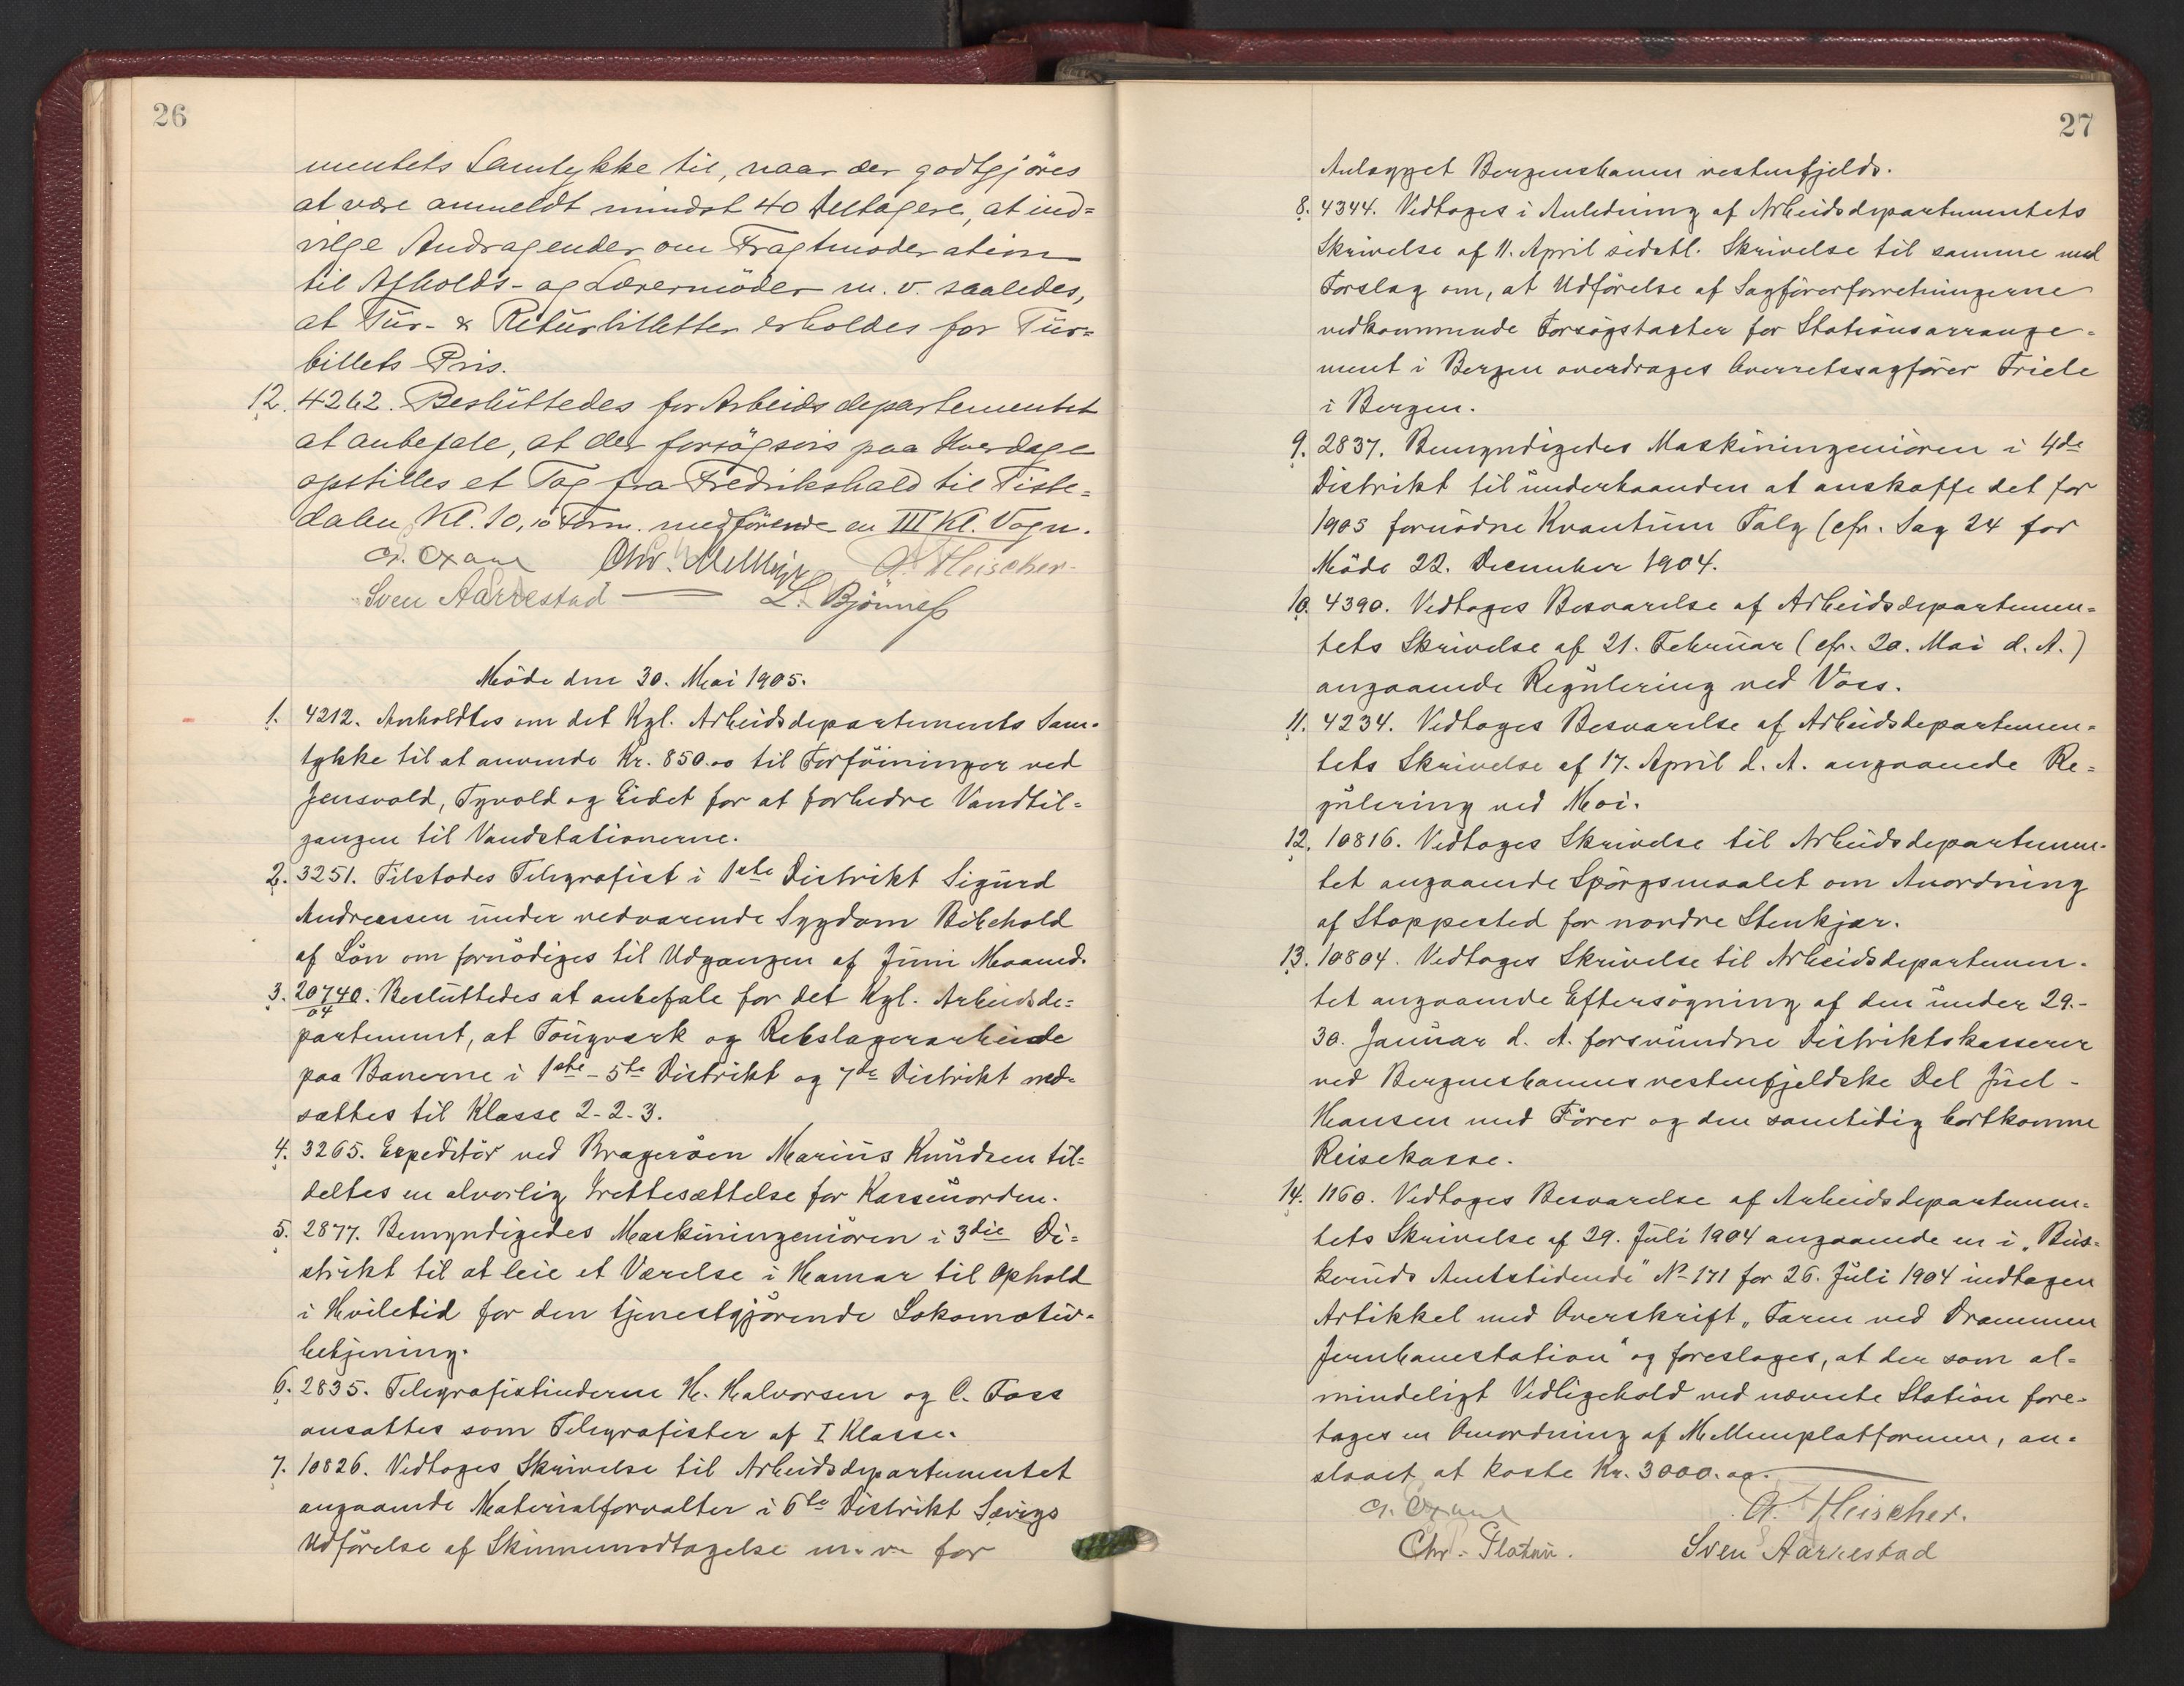 26
mentets Samtykke til, naar der godtgjöres
at være anmeldt mindst 40 Deltagere, at ind-
vilge Andragender om Fragtmoderation
til Afholds- og Lærermöder m. v. saaledes,
at Tur- & Returbilletter erholdes for Tur-
billets Pris.
12. 4262. Besluttedes for Arbeidsdepartementet
at anbefale, at der forsögsvis paa Hverdage
opstilles et Tog fra Fredrikshald til Tiste-
dalen Kl. 10,10 Form. medförende en III Kl. Vogn.
Chr. A. Fleischer.
Sven Aarrestad — L. Bjönness
Möde den 30. Mai 1905.
1. 4212. Anholdtes om det Kgl. Arbeidsdepartements Sam-
tykke til at anvende Kr. 850.00 til Forföininger ved
Jensvold, Tyvold og Eidet for at forbedre Vandtil-
gangen til Vandstationerne.
2. 3251. Tilstodes Telegrafist i 1ste Distrikt Sigurd
Andreassen under vedvarende Sygdom Bibehold
af Lön om fornödiges til Udgangen af Juni Maaned.
3. 20740/04. Besluttedes at anbefale for det Kgl. Arbeidsde-
partement, at Tougværk og Rebslagerarbeide
paa Banerne i 1ste - 5te Distrikt og 7de Distrikt ned-
sættes til Klasse 2-2-3.
4. 3265. Expeditör ved Brageröen Marius Knudsen til-
deltes en alvorlig Irettesættelse for Kasseuorden.
5. 2877. Bemyndigedes Maskiningeniören i 3die Di-
strikt til at leie et Værelse i Hamar til Ophold
i Hviletid for den tjenestgjörende Lokomotiv-
betjening.
6. 2835. Telegrafistinderne H. Halvorsen og C. Foss
ansattes som Telegrafister af I Klasse.
7. 10826. Vedtoges Skrivelse til Arbeidsdepartementet
angaaende Materialforvalter i 6te Distrikt Sævigs
Udförelse af Skinnemodtagelse m. v. for
27
Anlægget Bergensbanen vestenfjelds.
8. 4344. Vedtoges i Anledning af Arbeidsdepartementets
Skrivelse af 11. April sidstl. Skrivelse til samme med
Forslag om, at Udförelse af Sagförerforretningerne
vedkommende Forsögstaxter for Stationsarrange-
ment i Bergen overdrages Overretssagförer Friele
i Bergen.
9. 2837. Bemyndigedes Maskiningeniören i 4de
Distrikt til underhaanden at anskaffe det for
1905 fornödne Kvantum Talg (cfr. Sag 24 for
Möde 22. December 1904.
10. 4390. Vedtoges Besvarelse af Arbeidsdepartemen-
tets Skrivelse af 21. Februar (cfr. 20. Mai d. A.)
angaaende Regulering ved Voss.
11. 4234. Vedtoges Besvarelse af Arbeidsdepartemen-
tets Skrivelse af 17. April d. A. angaaende Re-
gulering ved Moi.
12. 10816. Vedtoges Skrivelse til Arbeidsdepartemen-
tet angaaende Spörgsmaalet om Anordning
af Stoppested for nordre Stenkjær.
13. 10804. Vedtoges Skrivelse til Arbeidsdepartemen-
tet angaaende Eftersögning af den under 29.-
30. Januar d. A. forsvundne Distriktskasserer
ved Bergensbanens vestenfjeldske Del Juel-
Hansen med Förer og den samtidig bortkomne
Reisekasse.
14. 1160. Vedtoges Besvarelse af Arbeidsdepartemen-
tets Skrivelse af 29. Juli 1904 angaaende en i "Bus-
keruds Amtstidende" No 171 for 26. Juli 1904 indtagen
Artikkel med Overskrift "Faren ved Drammen
Jernbanestation" og foreslages, at der som al-
mindeligt Vedligehold ved nævnte Station fore-
tages en Omordning af Mellemplatformen, an-
slaaet at koste Kr. 3000.00.
A. Fleischer.
Chr. Platou. Sven Aarrestad